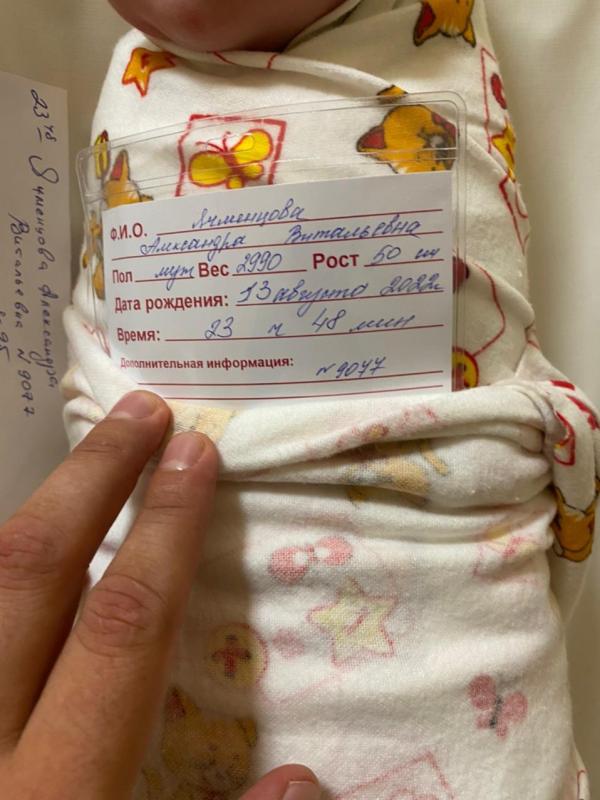 Ф.И.О. Ячменцова
Александра Витальевна
Пол муж Вес 2990 Рост 50 см
Дата рождения: 13 августа 2022г.
Время: 23 ч 48 мин
Дополнительная информация:
№ 9077
23 48 Ячменцова Александра
Витальевна № 9077